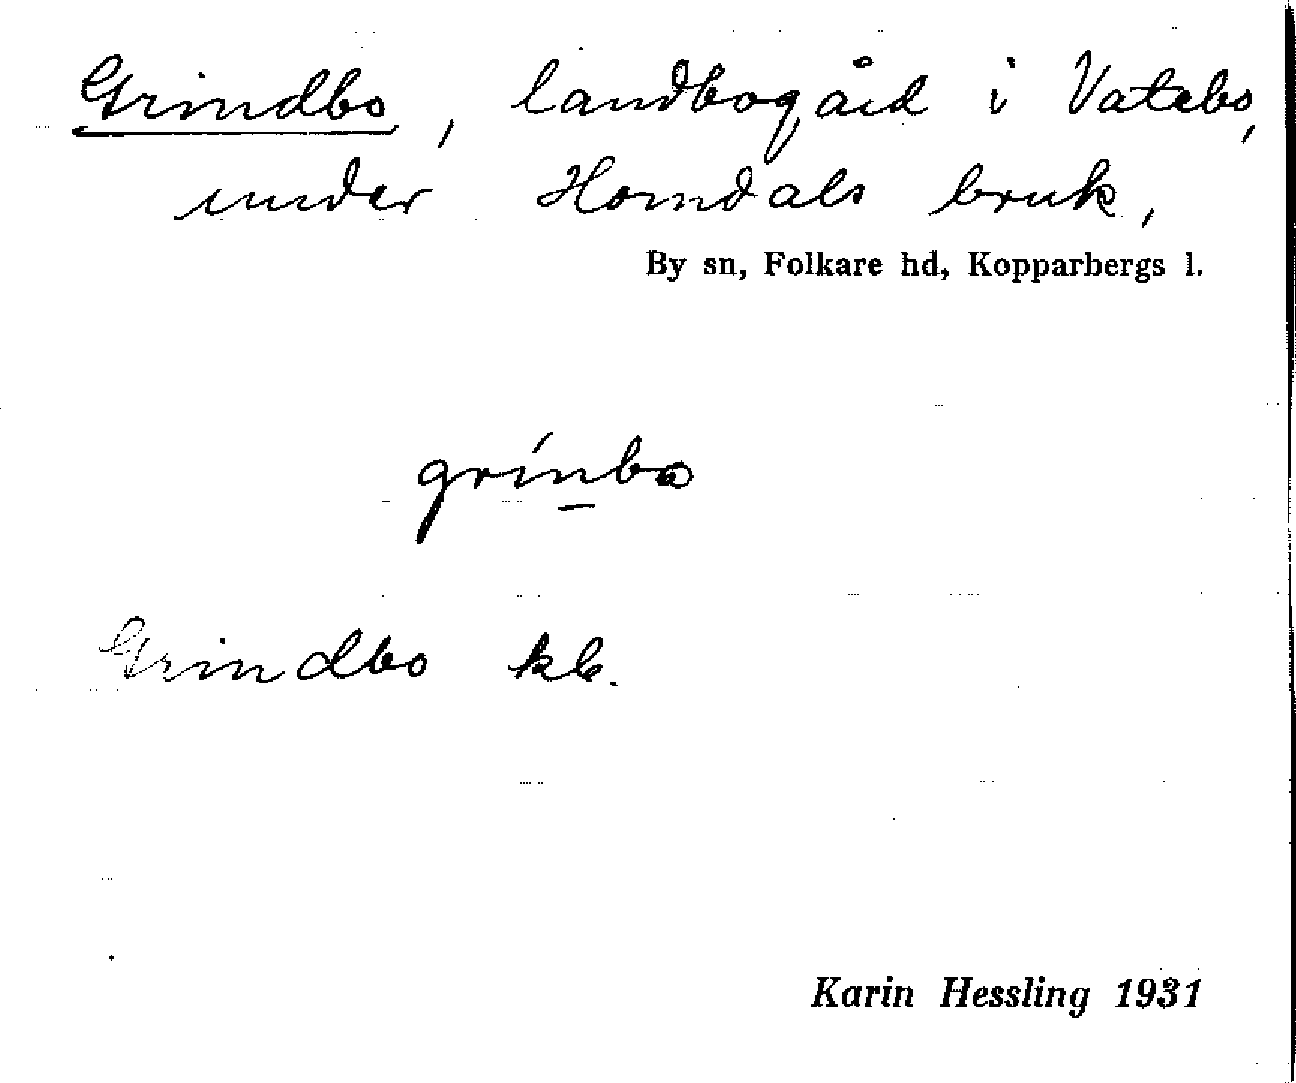 Grindbo, landbogård i Vatebo,
under Horndals bruk,
By sn, Folkare hd, Kopparbergs l.
grínbo
Grindbo kb.
Karin Hessling 1931